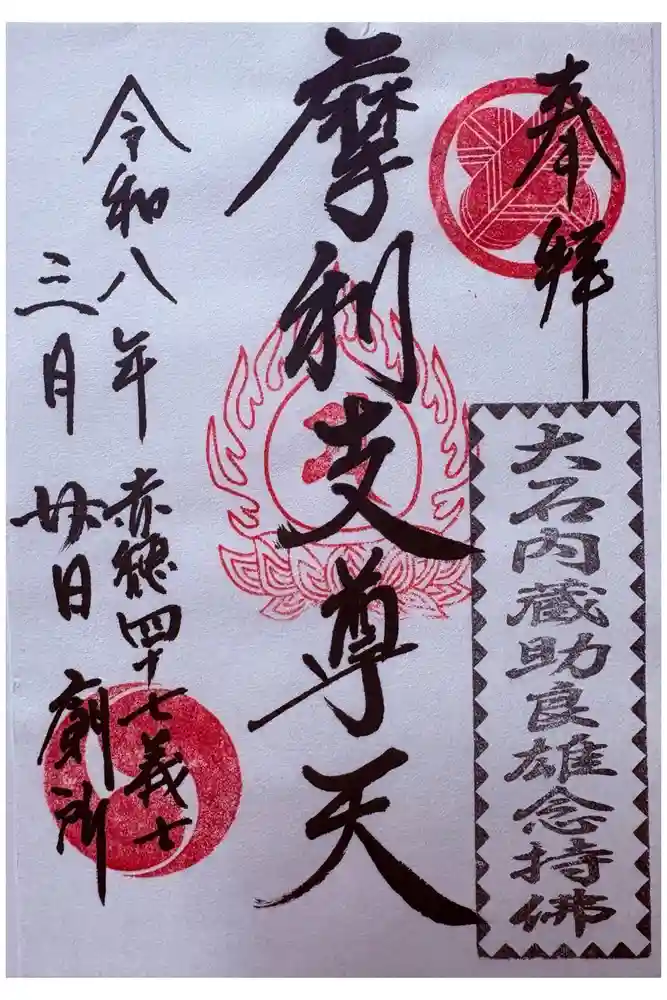 奉拝
大石内蔵助良雄念持佛
摩利支尊天
令和八年
三月廿日
赤穂四十七義士
廟所